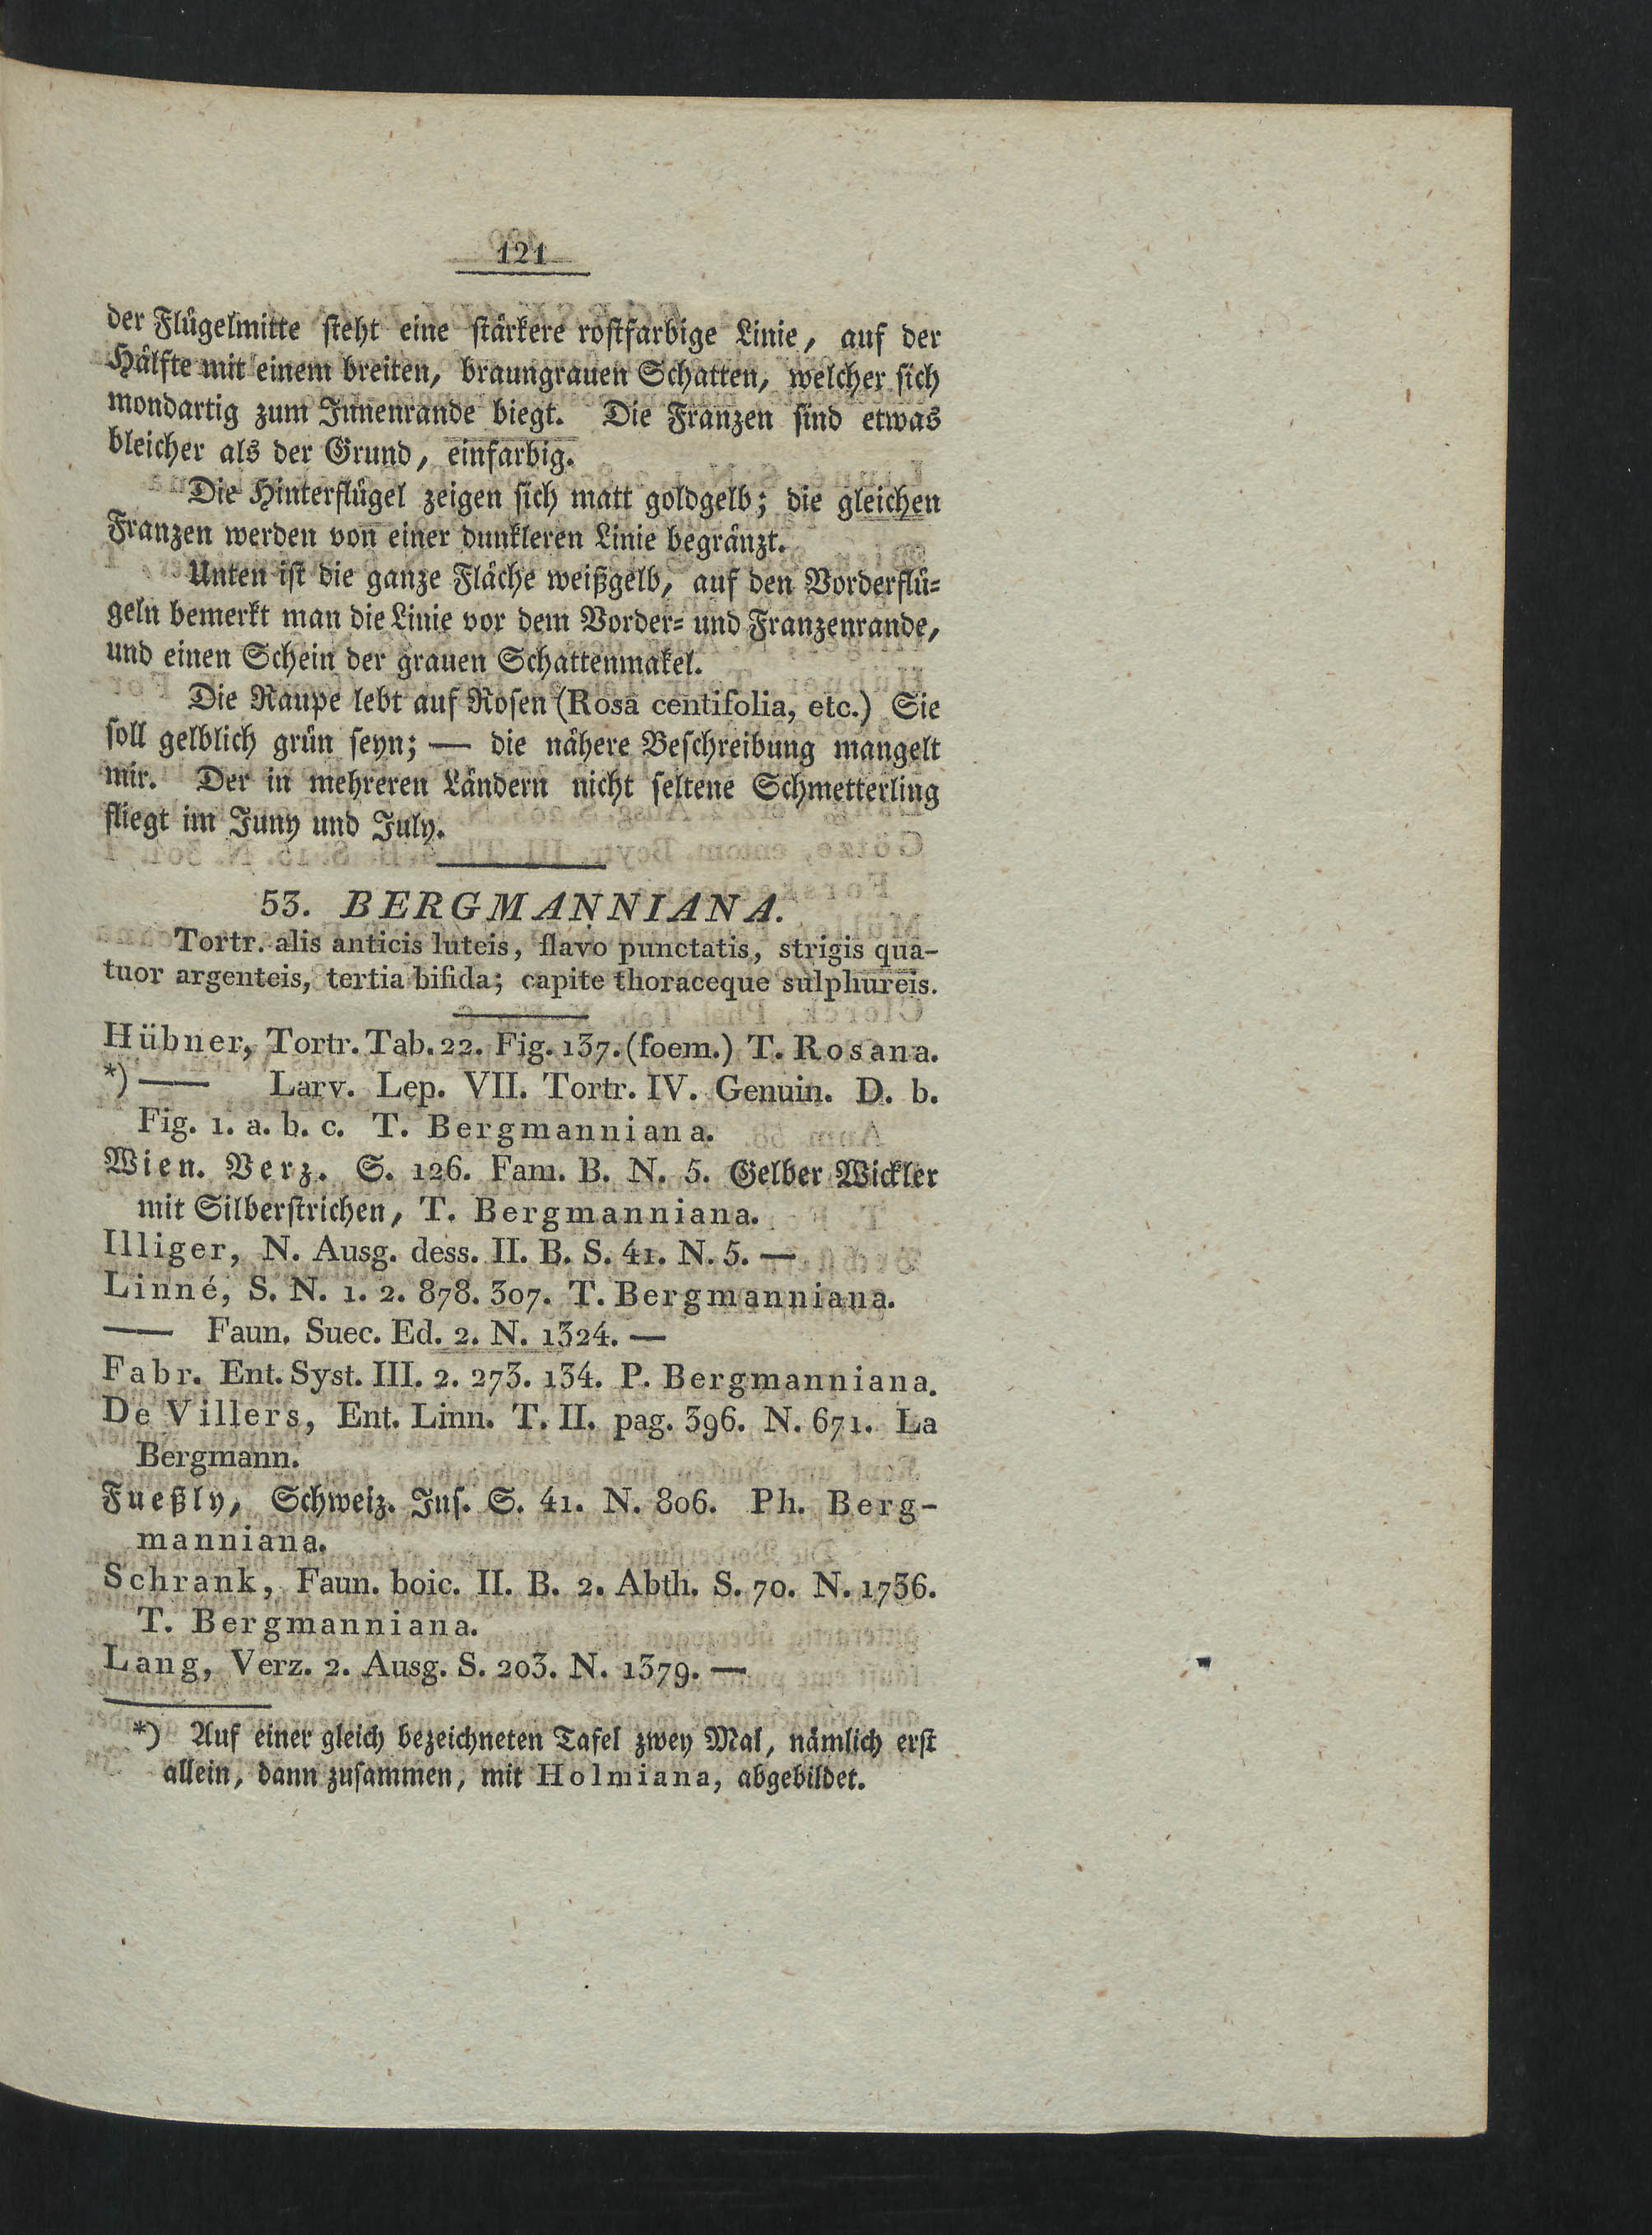 121
der Flügelmitte steht eine stärkere rostfarbige Linie, auf der
Hälfte mit einem breiten, braungrauen Schatten, welcher sich
mondartig zum Innenrande biegt. Die Franzen sind etwas
bleicher als der Grund, einfarbig.
Die Hinterflügel zeigen sich matt goldgelb; die gleichen
Franzen werden von einer dunkleren Linie begränzt.
Unten ist die ganze Fläche weißgelb, auf den Vorderflü-
geln bemerkt man die Linie vor dem Vorder- und Franzenrande,
und einen Schein der grauen Schattenmakel.
Die Raupe lebt auf Rosen (Rosa centifolia, etc.) Sie
soll gelblich grün seyn; — die nähere Beschreibung mangelt
mir. Der in mehreren Ländern nicht seltene Schmetterling
fliegt im Juny und July.
53. BERGMANNIANA.
Tortr. alis anticis luteis, flavo punctatis, strigis qua-
tuor argenteis, tertia bifida; capite thoraceque sulphureis.
Hübner, Tortr. Tab. 22. Fig. 137. (foem.) T. Rosana.
*) — Larv. Lep. VII. Tortr. IV. Genuin. D. b.
Fig. 1. a. b. c. T. Bergmanniana.
Wien. Verz. S. 126. Fam. B. N. 5. Gelber Wickler
mit Silberstrichen, T. Bergmanniana.
Illiger, N. Ausg. dess. II. B. S. 41. N. 5. —
Linné, S. N. 1. 2. 878. 307. T. Bergmanniana.
— Faun. Suec. Ed. 2. N. 1324. —
Fabr. Ent. Syst. III. 2. 273. 134. P. Bergmanniana.
De Villers, Ent. Linn. T. II. pag. 396. N. 671. La
Bergmann.
Fueßly, Schweiz. Ins. S. 41. N. 806. Ph. Berg-
manniana.
Schrank, Faun. boic. II. B. 2. Abth. S. 70. N. 1736.
T. Bergmanniana.
Lang, Verz. 2. Ausg. S. 203. N. 1379. —
*) Auf einer gleich bezeichneten Tafel zwey Mal, nämlich erst
allein, dann zusammen, mit Holmiana, abgebildet.